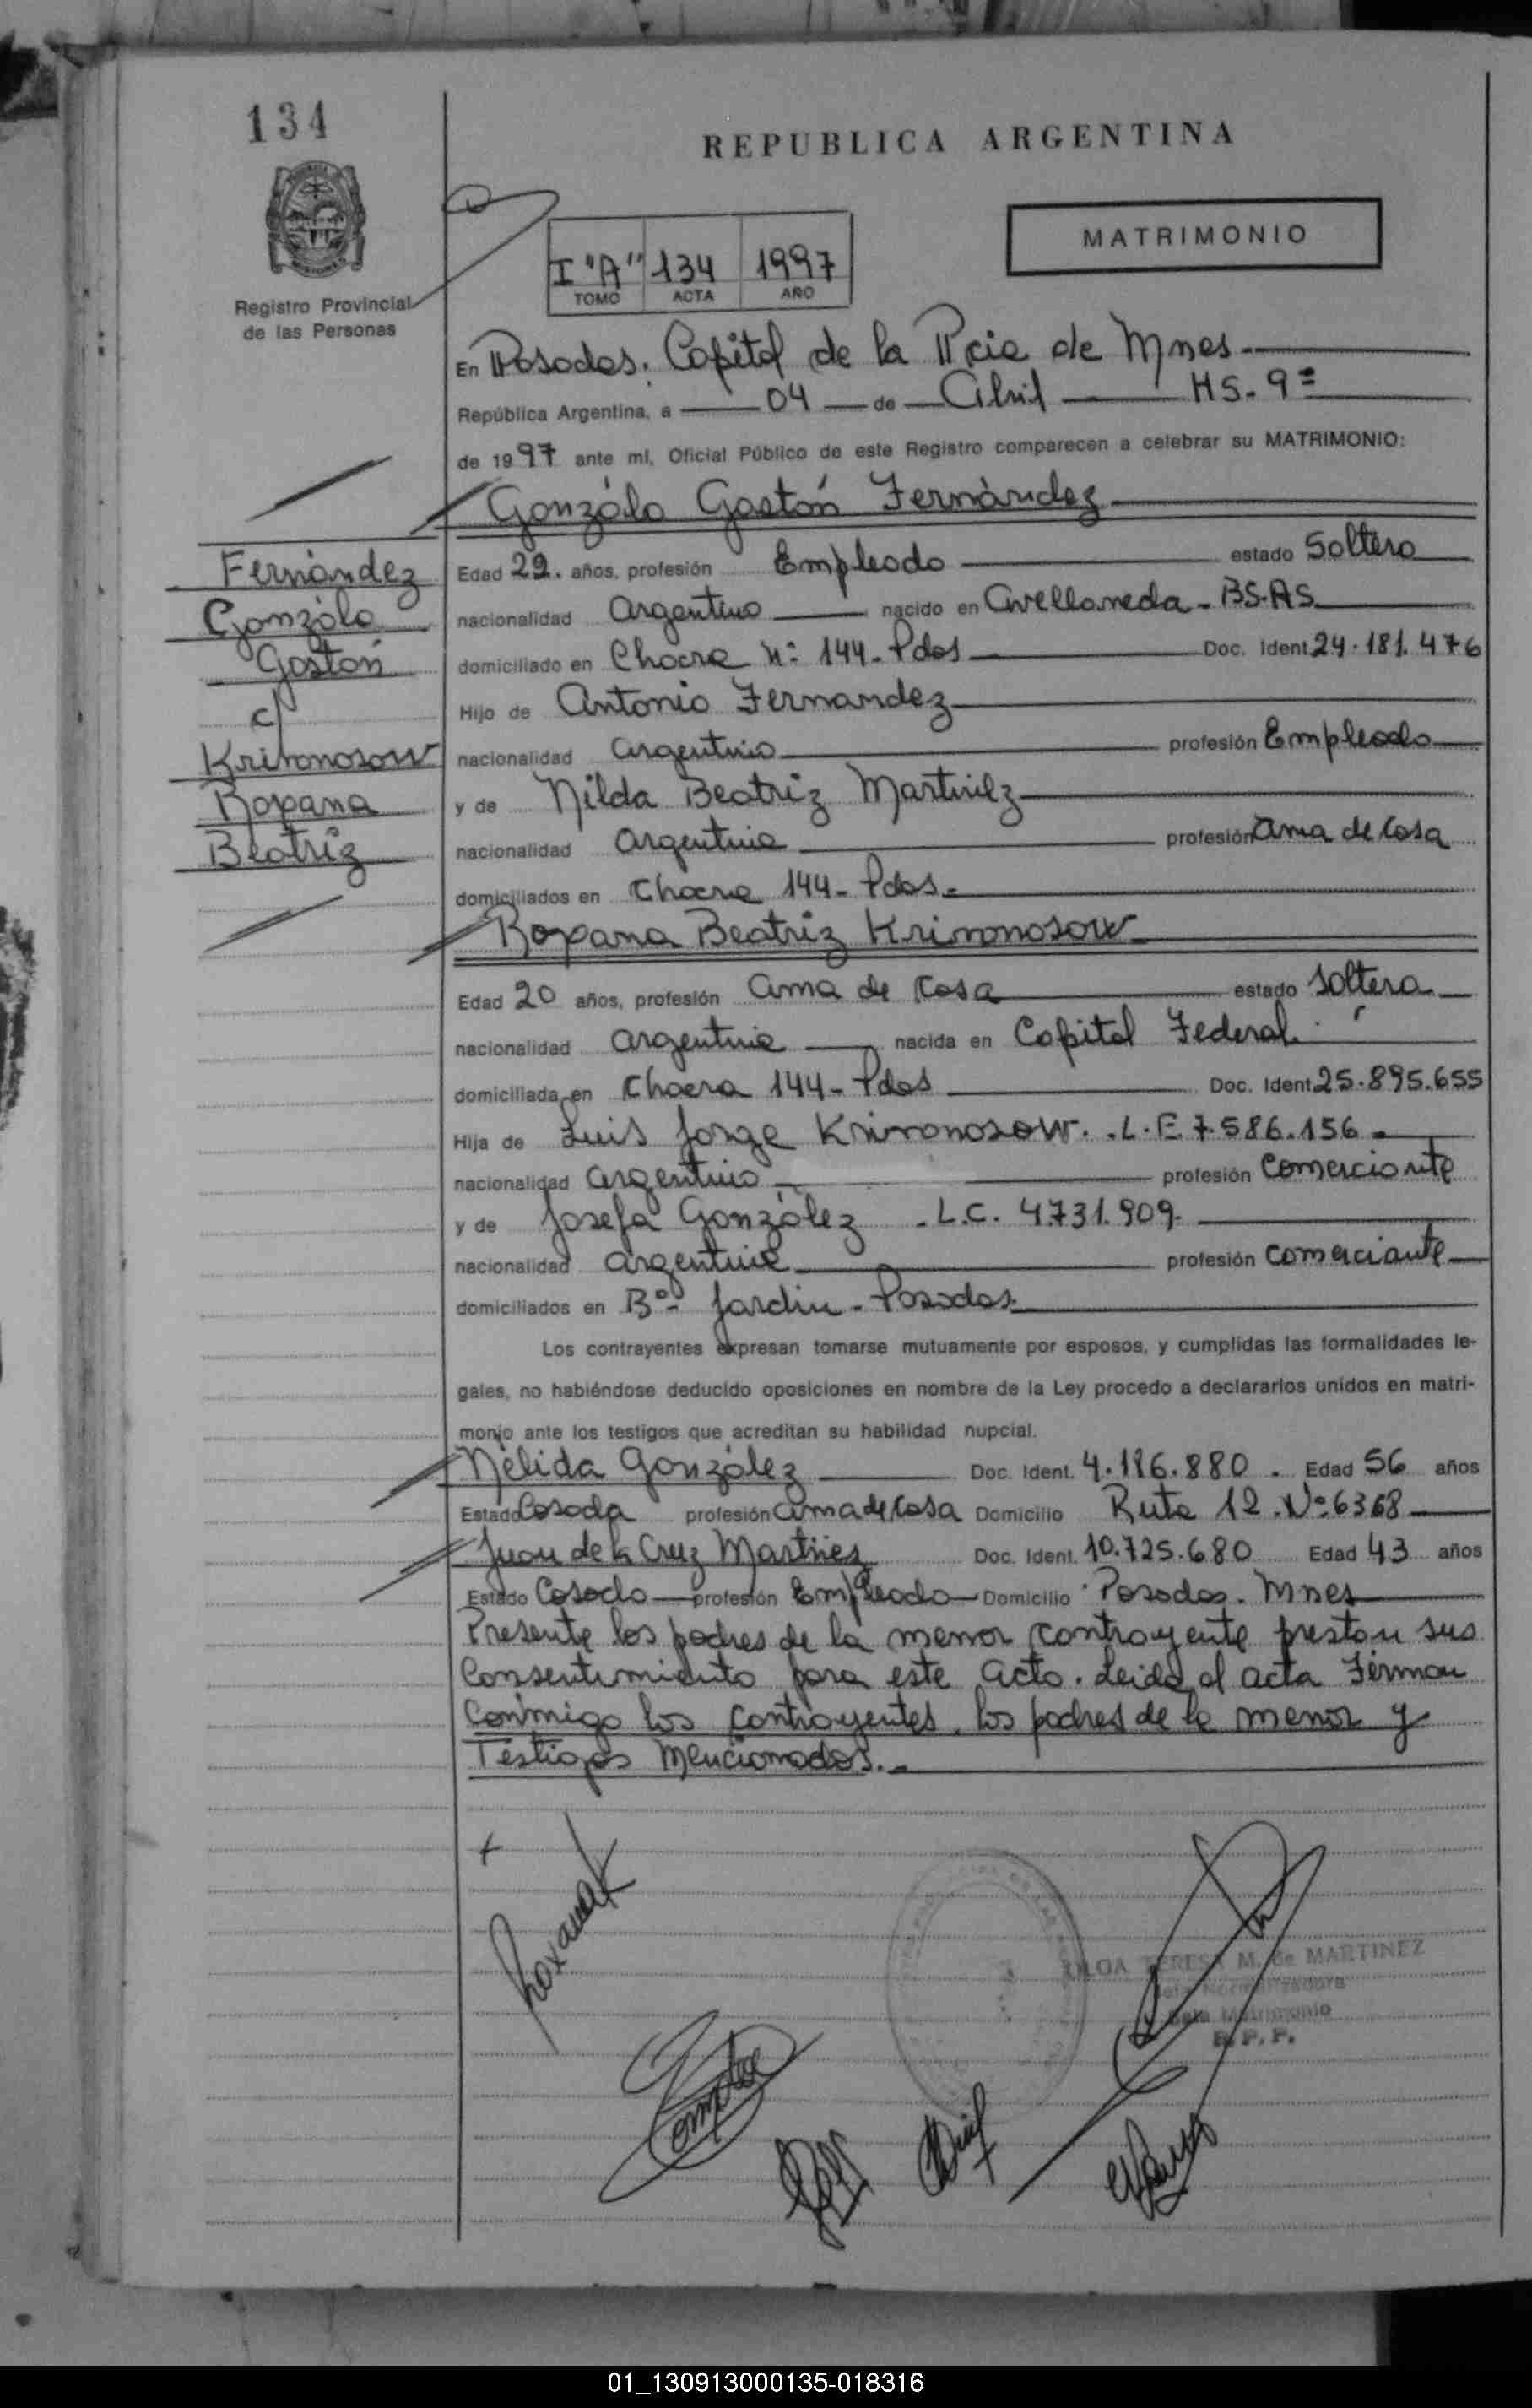 134
REPUBLICA ARGENTINA
MATRIMONIO
I "A" 134 1997
TOMO ACTA AÑO
Registro Provincial
de las Personas
En Posadas. Capital de la Pcia de Mnes
República Argentina, a 04 de Abril HS. 9=
de 1997 ante mí, Oficial Público de este Registro comparecen a celebrar su MATRIMONIO:
Gonzálo Gastón Fernández
Edad 29. años, profesión Empleado estado Soltero
nacionalidad Argentino nacido en Avellaneda - BS.AS
domiciliado en Chacra Nº 144 - Pdas Doc. Ident 24.181.476
Hijo de Antonio Fernandez
nacionalidad Argentino profesión Empleado
y de Nilda Beatriz Martinez
nacionalidad Argentina profesión Ama de Casa
domiciliados en Chacra 144 - Pdas.
Fernández
Gonzálo
Gastón
c/
Krivonosow
Roxana
Beatriz
Roxana Beatriz Krivonosow
Edad 20 años, profesión Ama de Casa estado Soltera
nacionalidad Argentina nacida en Capital Federal.
domiciliada en Chacra 144 - Pdas Doc. Ident 25.895.655
Hija de Luis Jorge Krivonosow. .L.E 7.586.156
nacionalidad Argentino profesión Comerciante
y de Josefa González .L.C. 4.731.909
nacionalidad Argentina profesión Comerciante
domiciliados en Bº Jardin - Posadas
Los contrayentes expresan tomarse mutuamente por esposos, y cumplidas las formalidades le-
gales, no habiéndose deducido oposiciones en nombre de la Ley procedo a declararlos unidos en matri-
monio ante los testigos que acreditan su habilidad nupcial.
Nélida González Doc. Ident. 4.186.880 . Edad 56 años
Estado Casada profesión Ama de Casa Domicilio Ruta 12 . Nº 6368
Juan de la Cruz Martínez Doc. Ident. 10.725.680 Edad 43 años
Estado Casado profesión Empleado Domicilio Posadas. Mnes
Presente los padres de la menor contrayente prestan sus
Consentimiento para este acto. Leida el acta Firman
Conmigo los contrayentes, los padres de la menor y
Testigos Mencionados.
Roxana K
TERESA M. de MARTINEZ
Normalizadora
Sala Matrimonio
R.P.P.
01_130913000135-018316